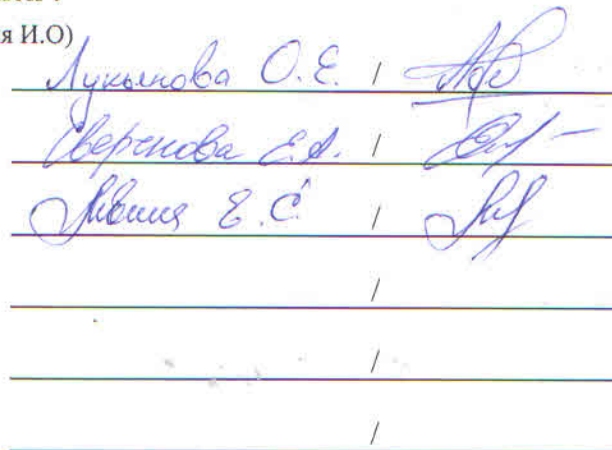 я И.О)
Лукьянова О.Е. /
Сверчкова Е.А. /
Е.С. /
/
/
/